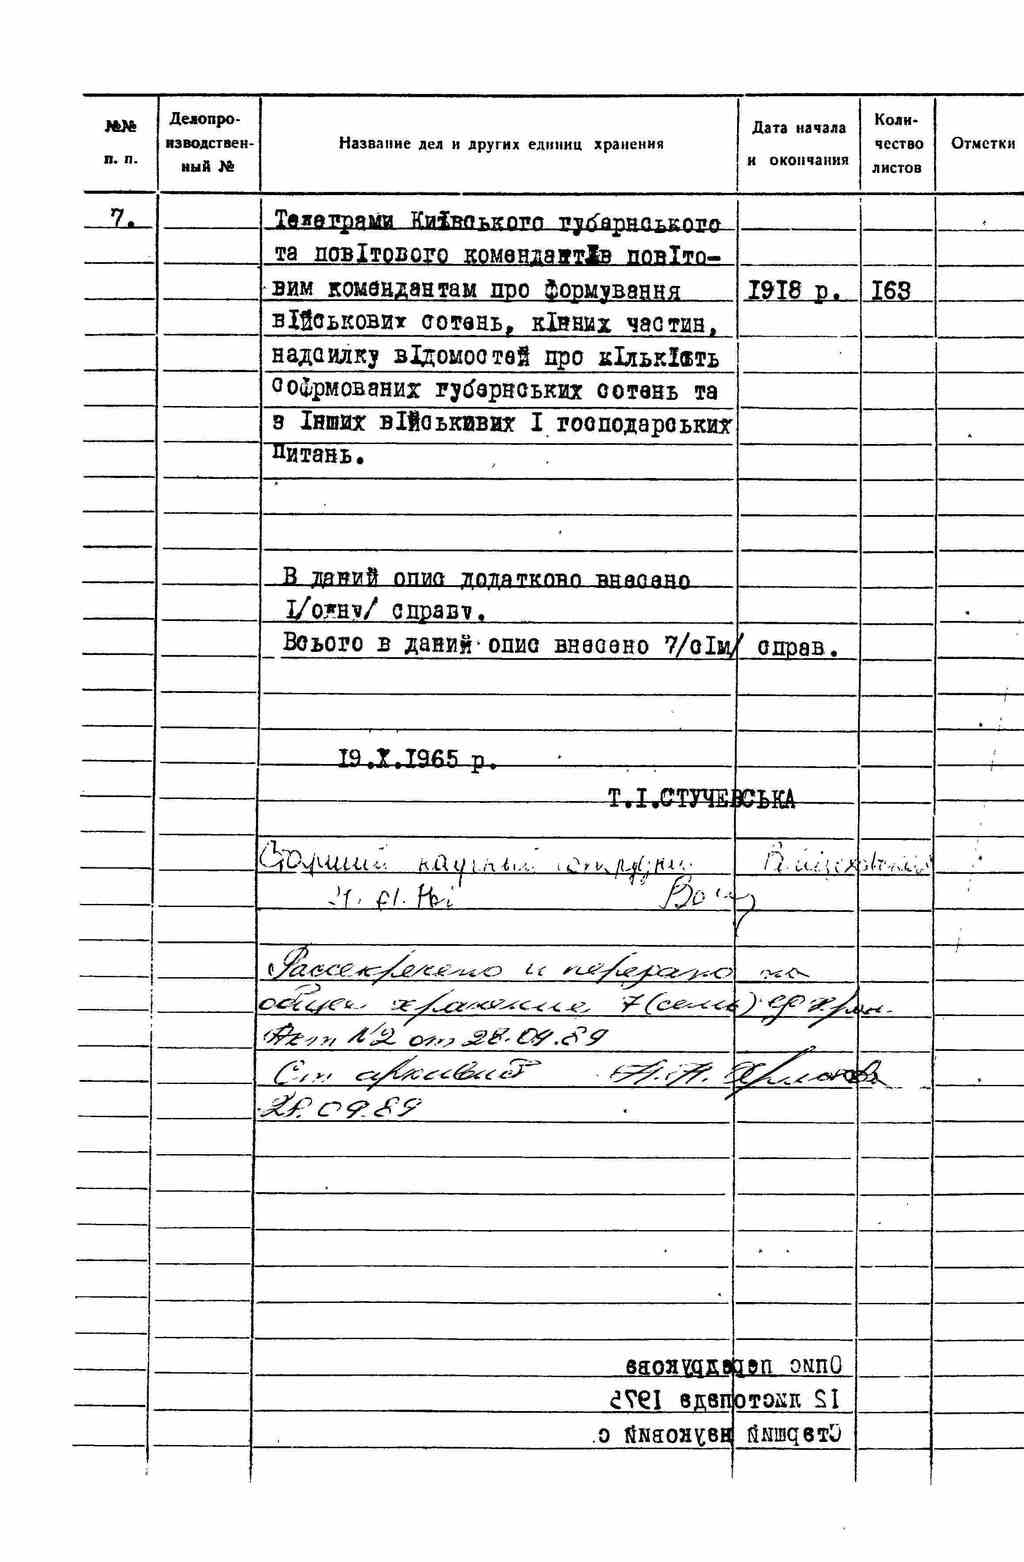 №№ п. п.
Делопроизводственный №
Название дел и других единиц хранения
Дата начала и окончания
Количество листов
Отметки
7.
Телеграми КиЇвського губернського
та повІтового комендантІв повІто-
вим комендантам про формування 1918 р. 163
вІйськових сотень, кІнних частин,
надсилку вІдомостей про кІлькІсть
сформованих губернських сотень та
з Інших вІйськивих І господарських
питань.
В даний опис додатково внесено
І/одну/ справу.
Всього в даний опис внесено 7/сІм/ справ.
19.X.1965 р.
Т.І.СТУЧЕВСЬКА
Старший научный сотрудник
Рассекречено и передано на
общее хранение 7 (семь) ед. хран.
Акт №2 от 28.09.89
Ст. архивист
28.09.89
Опис передрукова
12 листопада 1975
Старший науковий с